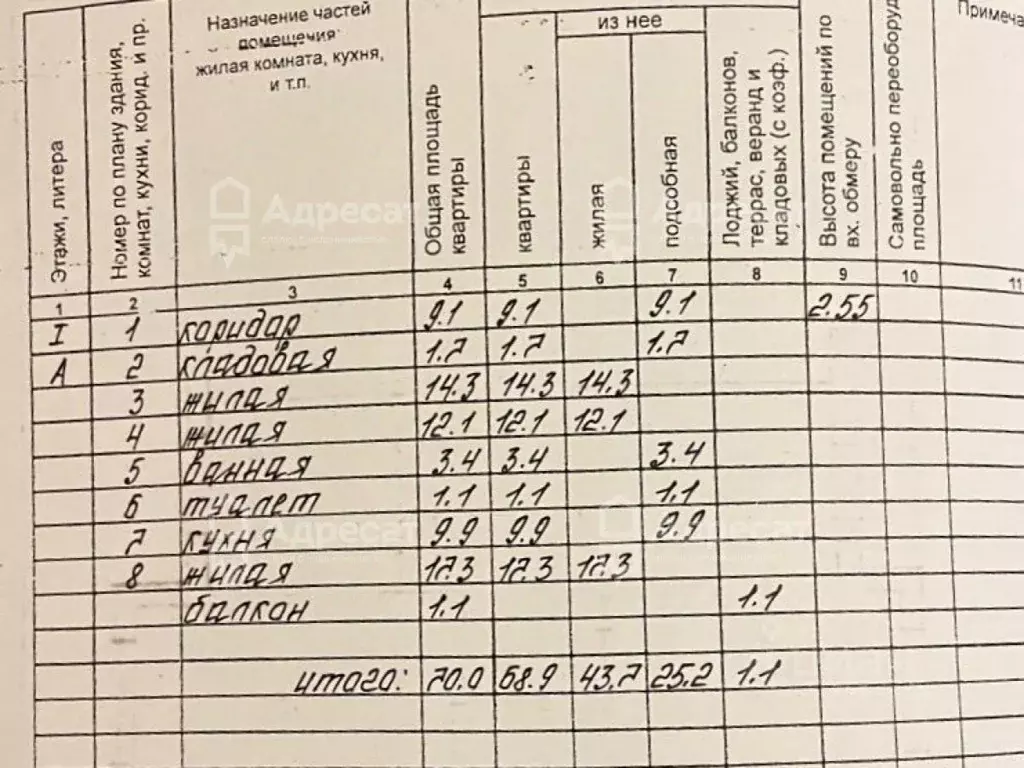 Назначение частей
помещения
жилая комната, кухня,
и т.п.
из нее
Примеча
Этажи, литера
Номер по плану здания,
комнат, кухни, корид. и пр.
Общая площадь
квартиры
квартиры
жилая
подсобная
Лоджий, балконов,
террас, веранд и
кладовых (с коэф.)
Высота помещений по
вх. обмеру
Самовольно переоборуд
площадь
Адресат
Адресат
1 2 3 4 5 6 7 8 9 10 11
I 1 коридар 9.1 9.1 9.1 2.55
А 2 кладовая 1.7 1.7 1.7
3 жилая 14.3 14.3 14.3
4 жилая 12.1 12.1 12.1
5 ванная 3.4 3.4 3.4
6 туалет 1.1 1.1 1.1
7 кухня 9.9 9.9 9.9
Адресат
Адресат
8 жилая 17.3 17.3 17.3
балкон 1.1 1.1
итого: 70.0 68.9 43.7 25.2 1.1